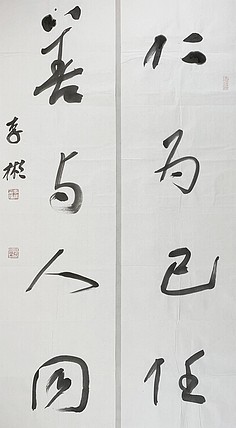 仁为己任
善与人同
李彬